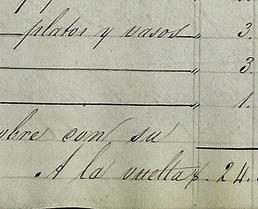 platos y vasos " 3.
" 3.
" 1.
con su
A la vuelta $. 24.